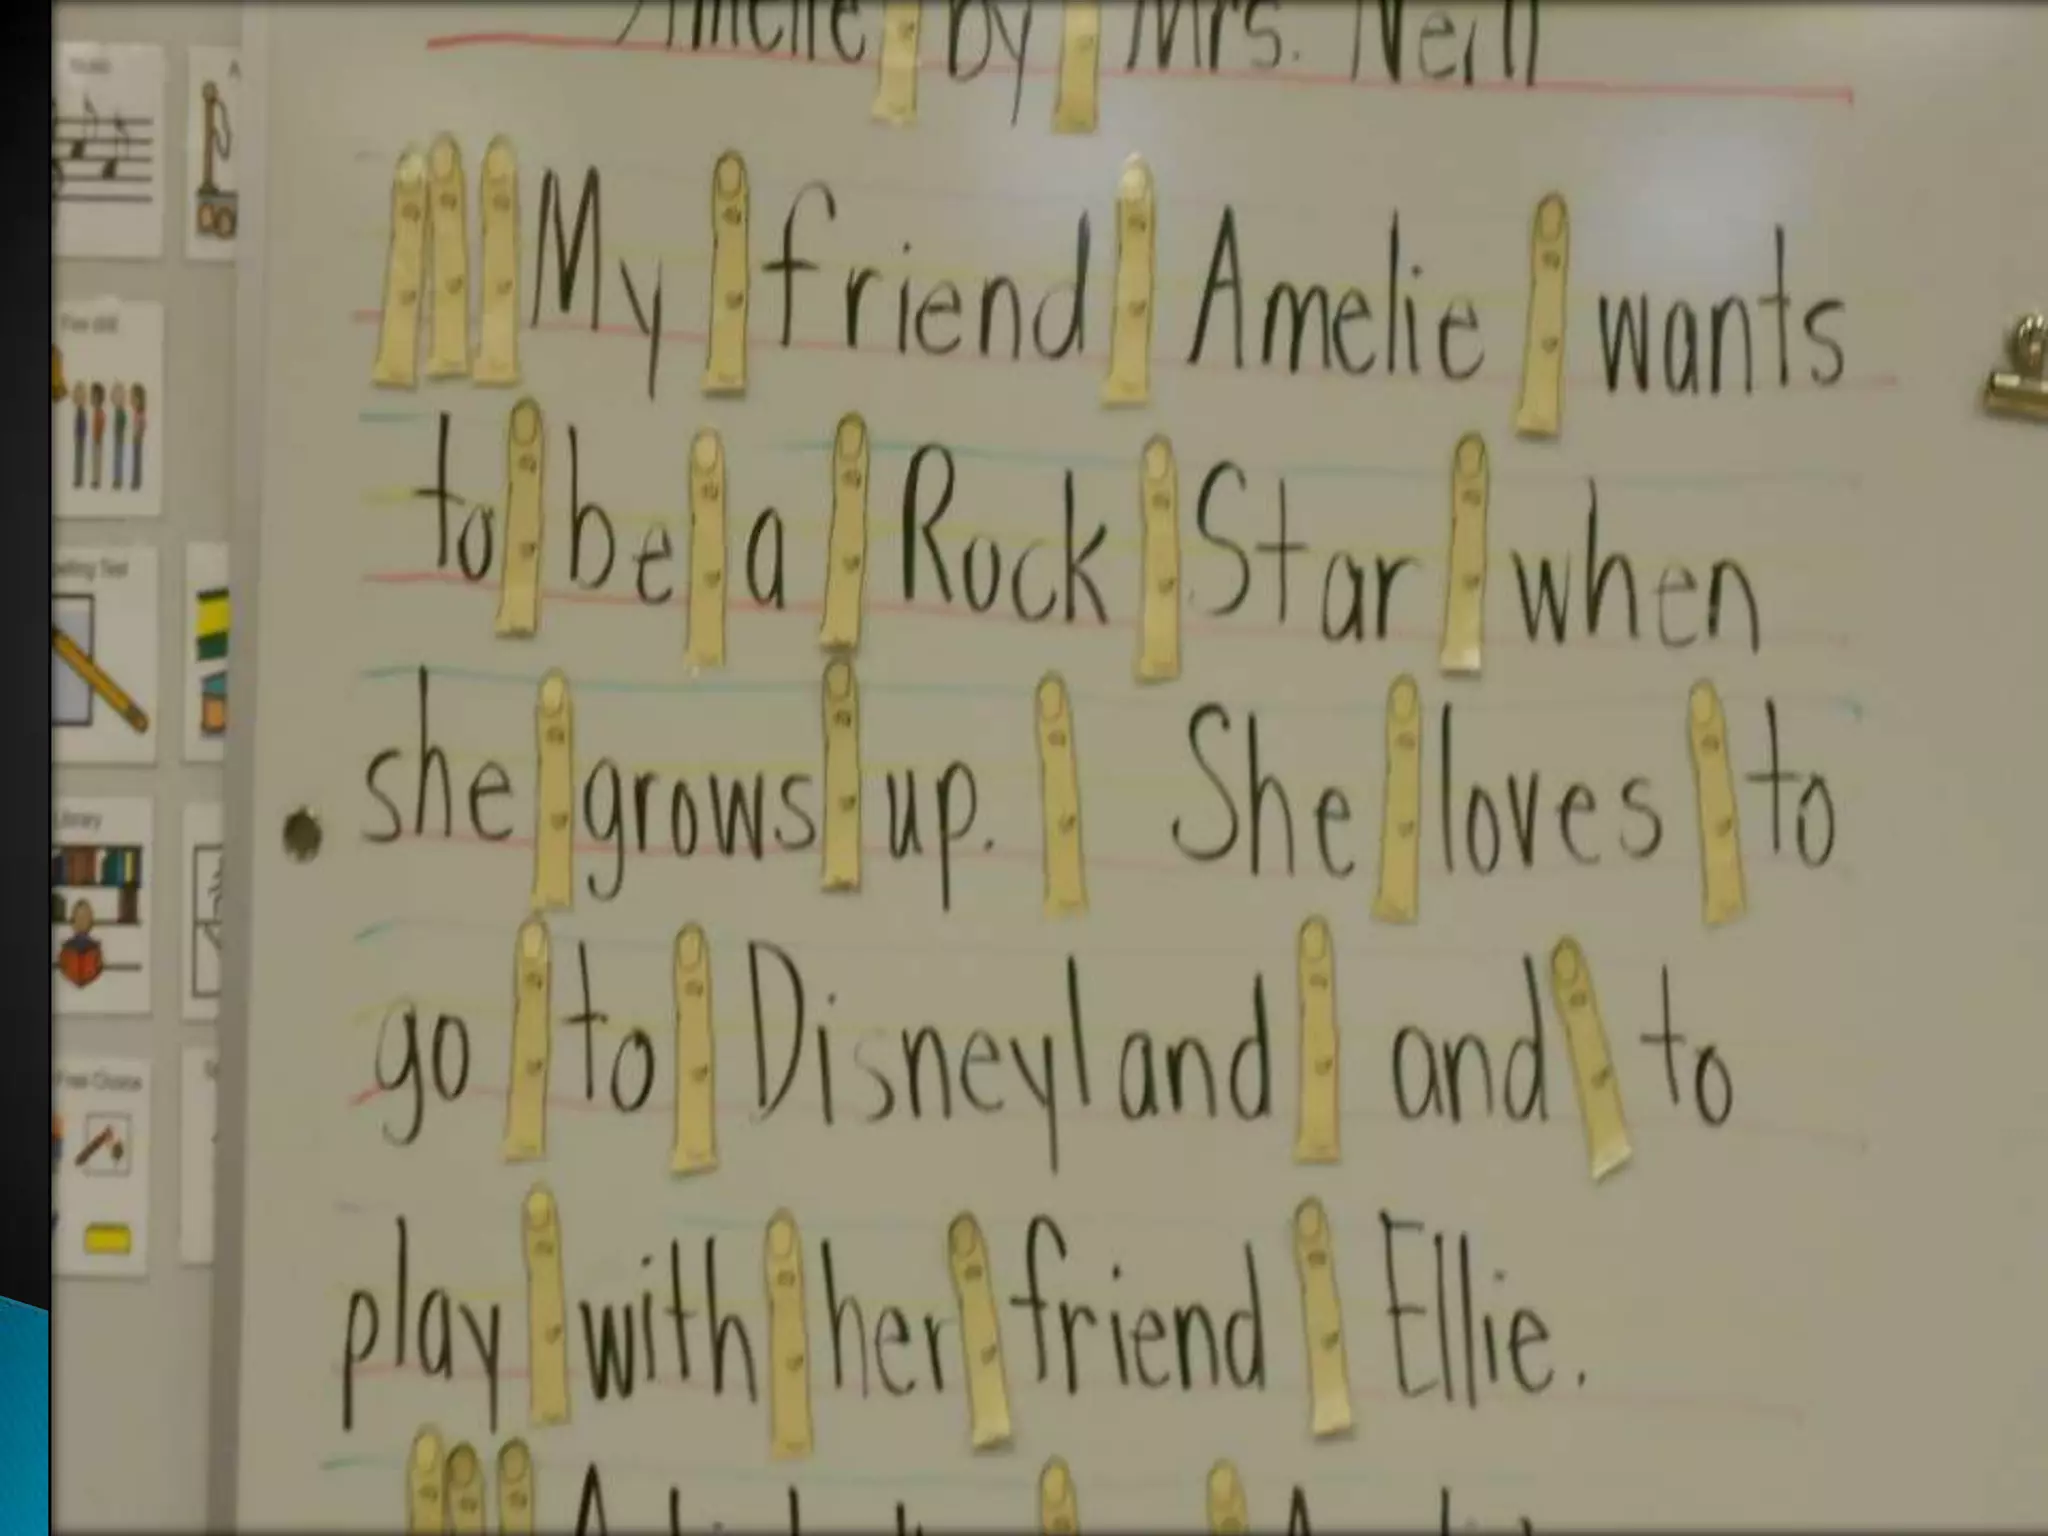 Amelie by Mrs. Neill
My friend Amelie wants
to be a Rock Star when
she grows up. She loves to
go to Disneyland and to
play with her friend Ellie.
Music
Library
Free Choice